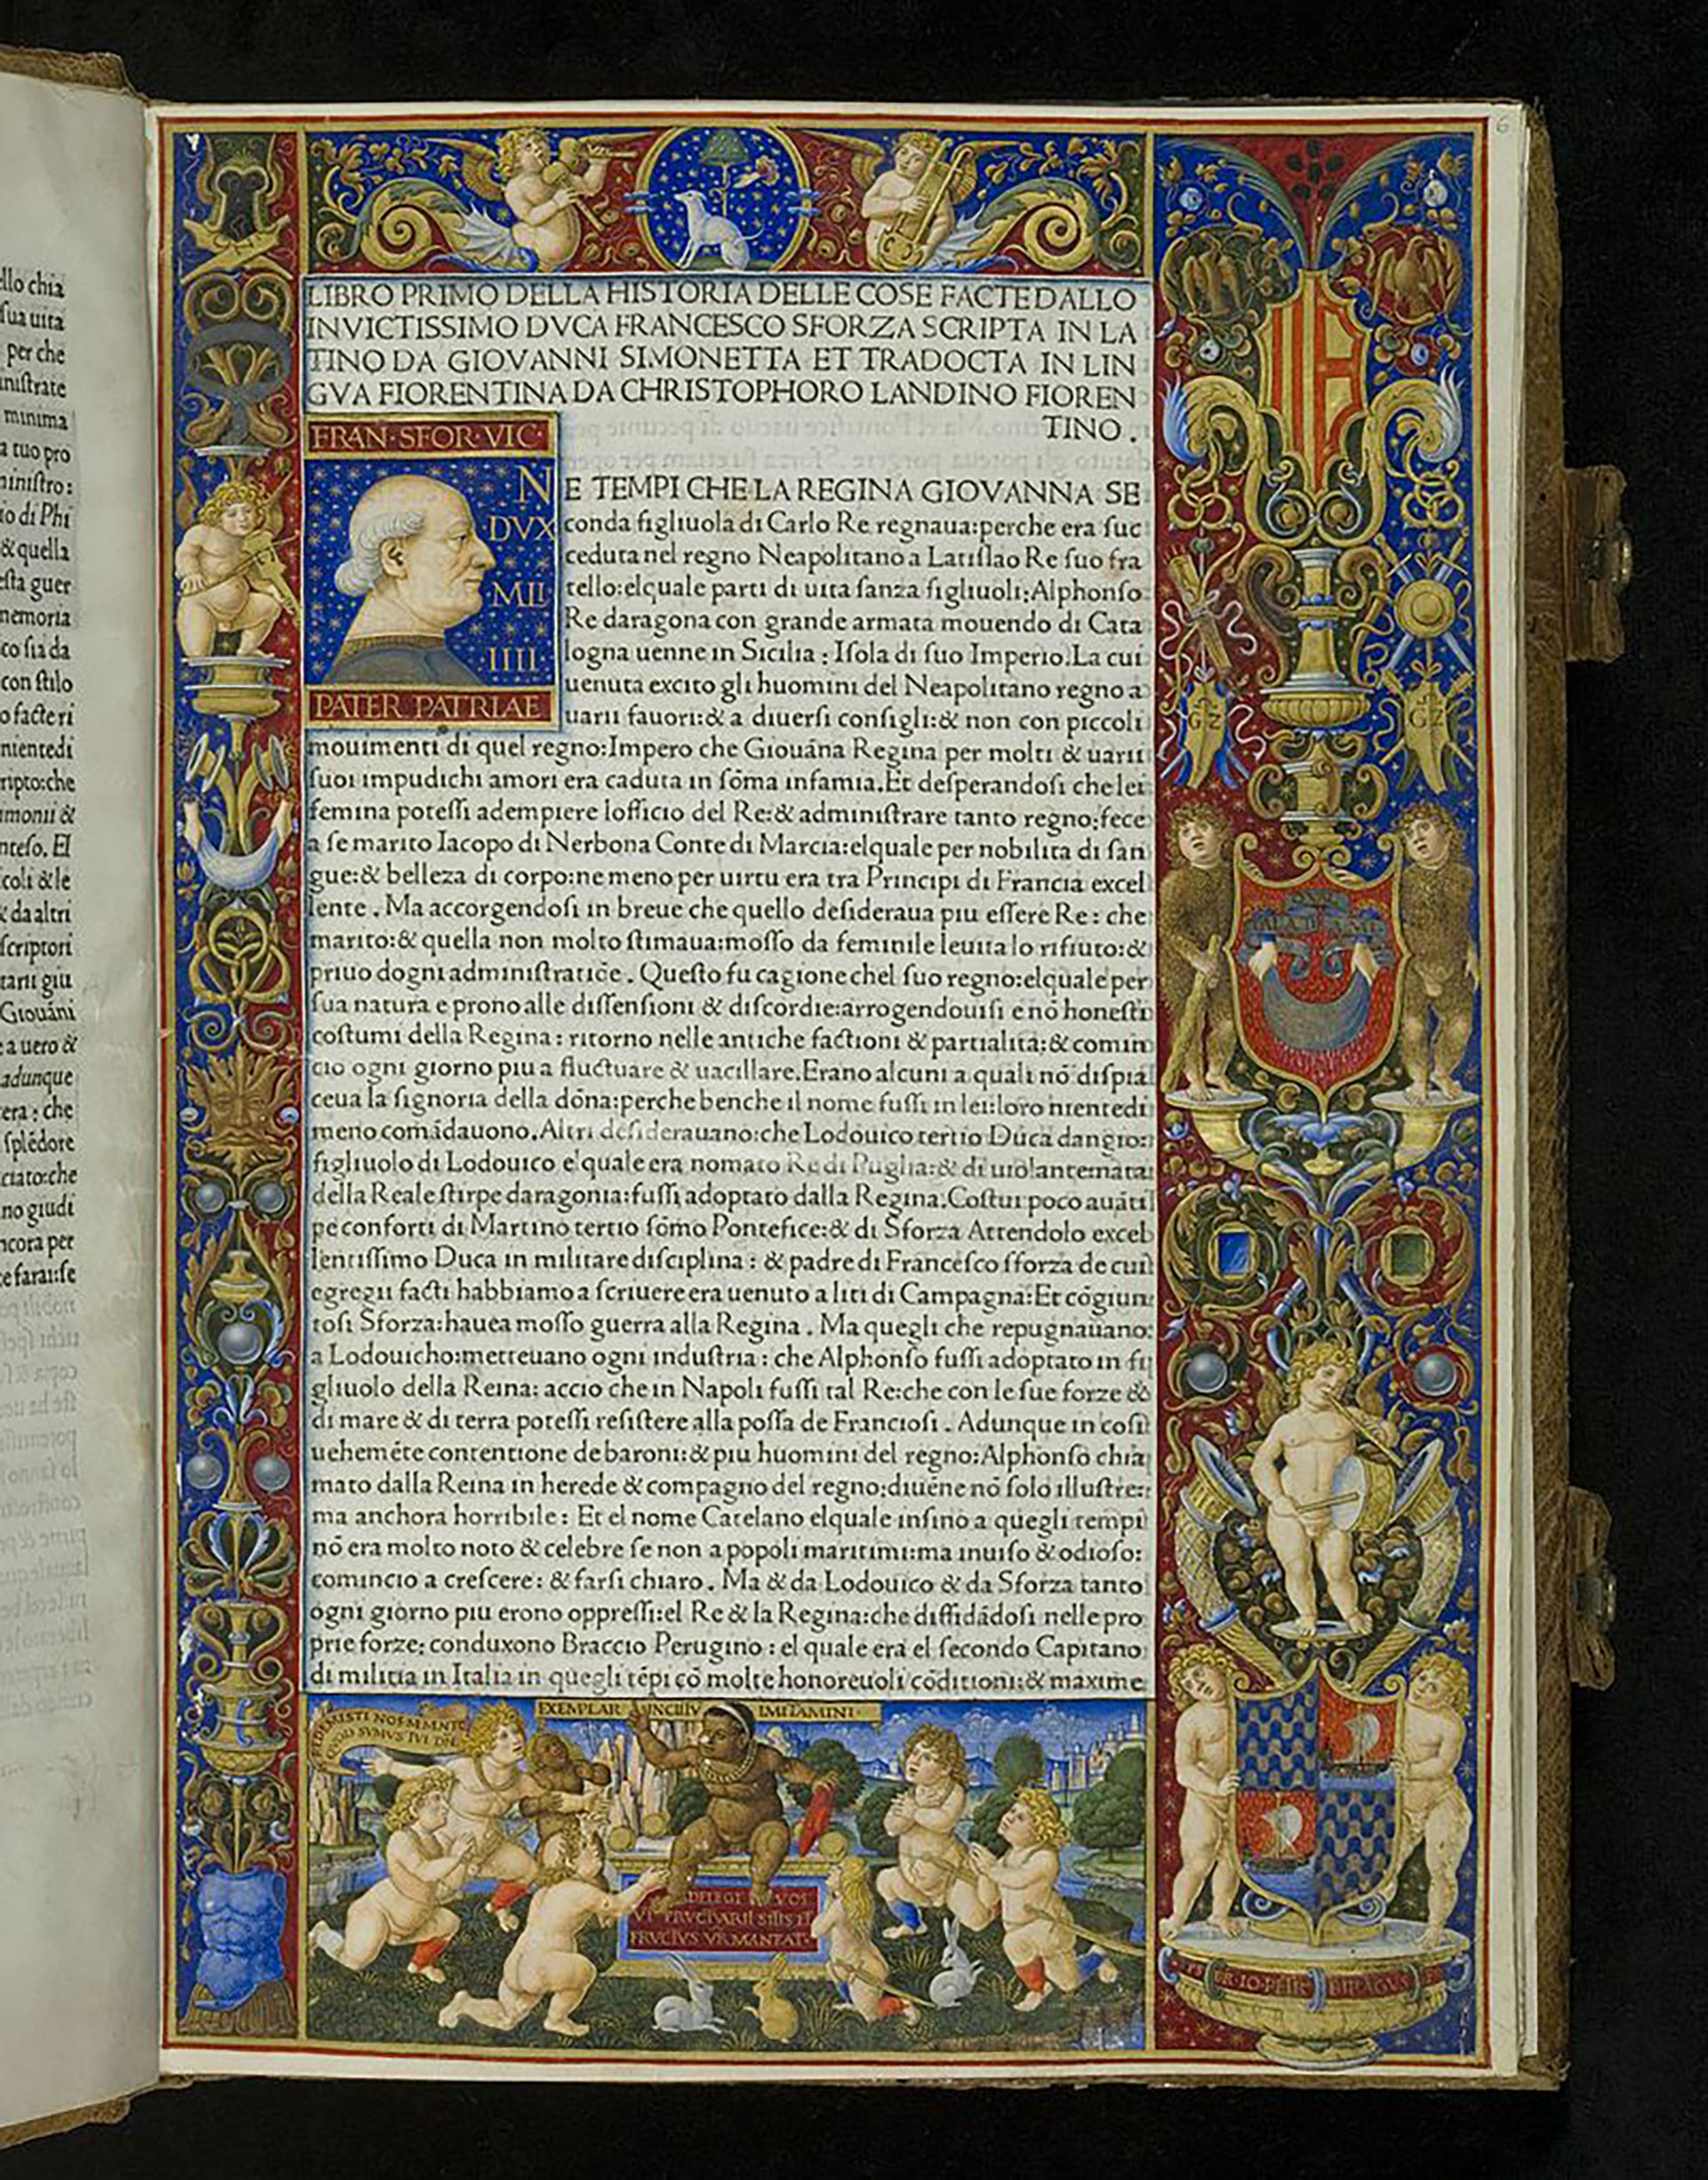 6
LIBRO PRIMO DELLA HISTORIA DELLE COSE FACTE DALLO
INVICTISSIMO DVCA FRANCESCO SFORZA SCRIPTA IN LA
TINO DA GIOVANNI SIMONETTA ET TRADOCTA IN LIN
GVA FIORENTINA DA CHRISTOPHORO LANDINO FIOREN
TINO.
FRAN·SFOR·VIC·
N
DVX
MIL
·IIII·
PATER PATRIAE
E TEMPI CHE LA REGINA GIOVANNA SE
conda figliuola di Carlo Re regnaua:perche era suc
ceduta nel regno Neapolitano a Latislao Re suo fra
tello:elquale parti di uita sanza figliuoli:Alphonso
Re daragona con grande armata mouendo di Cata
logna uenne in Sicilia: Isola di suo Imperio.La cui
uenuta excito gli huomini del Neapolitano regno a
uarii fauori:& a diuersi consigli:& non con piccoli
mouimenti di quel regno:Impero che Giouāna Regina per molti & uarii
suoi impudichi amori era caduta in sōma infamia.Et desperandosi che lei
femina potessi adempiere lofficio del Re:& administrare tanto regno:fece
a se marito Iacopo di Nerbona Conte di Marcia:elquale per nobilita di san
gue:& belleza di corpo:ne meno per uirtu era tra Principi di Francia excel
lente. Ma accorgendosi in breue che quello desideraua piu essere Re: che
marito:& quella non molto stimaua:mosso da feminile leuita lo rifiuto:&
priuo dogni administratiōe. Questo fu cagione chel suo regno:elquale per
sua natura e prono alle dissensioni & discordie:arrogendouisi e nō honesti
costumi della Regina: ritorno nelle antiche factioni & partialita:& comin
cio ogni giorno piu a fluctuare & uacillare.Erano alcuni a quali nō dispia
ceua la signoria della dōna:perche benche il nome fussi in lei:loro nientedi
meno comādauono.Altri desiderauano:che Lodouico tertio Duca dangio:
figliuolo di Lodouico elquale era nomato Re di Puglia:& di uiolante nata
della Reale stirpe daragonia:fussi adoptato dalla Regina.Costui poco auāti
pe conforti di Martino tertio sōmo Pontefice:& di Sforza Attendolo excel
lentissimo Duca in militare disciplina: & padre di Francesco sforza de cui
egregii facti habbiamo a scriuere era uenuto a liti di Campagna:Et cōgiun
tosi Sforza:hauea mosso guerra alla Regina. Ma quegli che repugnauano
a Lodouicho:metteuano ogni industria: che Alphonso fussi adoptato in fi
gliuolo della Reina: accio che in Napoli fussi tal Re:che con le sue forze &
di mare & di terra potessi resistere alla possa de Franciosi. Adunque in cosi
uehemēte contentione de baroni:& piu huomini del regno:Alphonso chia
mato dalla Reina in herede & compagno del regno:diuēne nō solo illustre:
ma anchora horribile: Et el nome Catelano elquale insino a quegli tempi
nō era molto noto & celebre se non a popoli maritimi:ma inuiso & odioso:
comincio a crescere: & farsi chiaro. Ma & da Lodouico & da Sforza tanto
ogni giorno piu erono oppressi:el Re & la Regina:che diffidādosi nelle pro
prie forze: conduxono Braccio Perugino: el quale era el secondo Capitano
di militia in Italia in quegli tēpi cō molte honoreuoli cōditioni:& maxime
EXEMPLAR IMITAMINI·
DELEGI VOS
FRVCTVS
GZ
GZ
llo chia
sua uita
per che
nistrate
minima
a tuo pro
ministro:
io di Phi
& quella
esta guer
memoria
co sia da
con stilo
o facte ri
nientedi
ripto:che
monii &
nteso. El
coli & le
& da altri
scriptori
tarii giu
Giouāni
e a uero &
adunque
era: che
splēdore
ciato:che
no giudi
ncora per